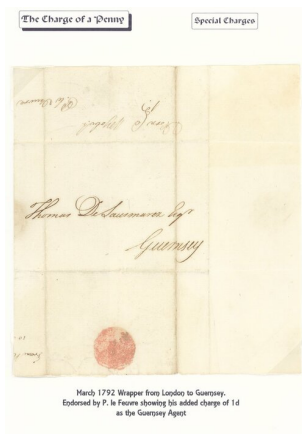 The Charge of a Penny
Special Charges
Thomas De Sausmarez Esqr
Guernsey
March 1792 Wrapper from London to Guernsey.
Endorsed by P. le Feuvre showing his added charge of 1d
as the Guernsey Agent